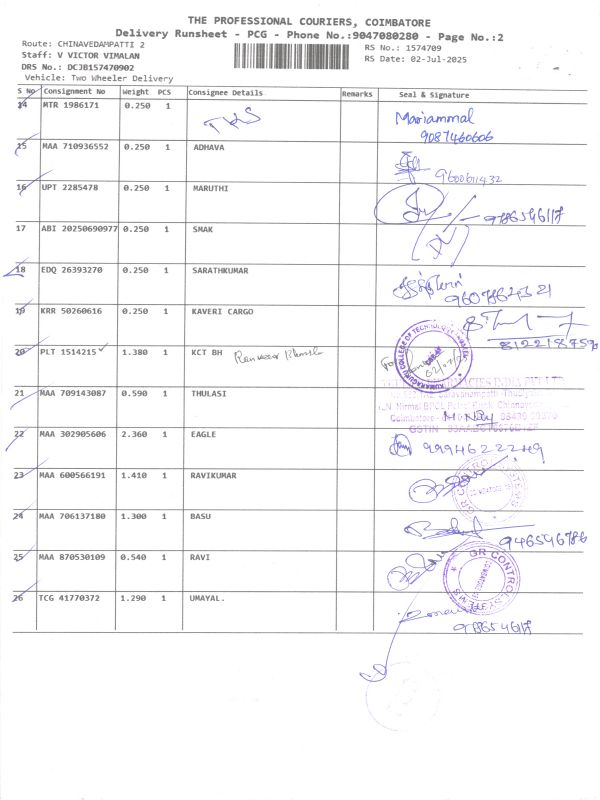 THE PROFESSIONAL COURIERS, COIMBATORE
Delivery Runsheet - PCG - Phone No.:9047080280 - Page No.:2
Route: CHINAVEDAMPATTI 2
RS No.: 1574709
Staff: V VICTOR VIMALAN
RS Date: 02-Jul-2025
DRS No.: DCJB157470902
Vehicle: Two Wheeler Delivery
S No Consignment No Weight PCS Consignee Details Remarks Seal & Signature
14 MTR 1986171 0.250 1 TKS Mariammal
9087460606
15 MAA 710936552 0.250 1 ADHAVA
9600611432
16 UPT 2285478 0.250 1 MARUTHI
9786546117
17 ABI 20250690977 0.250 1 SMAK
18 EDQ 26393270 0.250 1 SARATHKUMAR
9607862321
19 KRR 50260616 0.250 1 KAVERI CARGO
20 PLT 1514215 1.380 1 KCT BH
KUMARAGURU COLLEGE OF TECHNOLOGY
21 MAA 709143087 0.590 1 THULASI
22 MAA 302905606 2.360 1 EAGLE
9994622249
23 MAA 600566191 1.410 1 RAVIKUMAR
GR CONTROL SYSTEMS
24 MAA 706137180 1.300 1 BASU
946546786
25 MAA 870530109 0.540 1 RAVI
GR CONTROL SYSTEMS
26 TCG 41770372 1.290 1 UMAYAL.